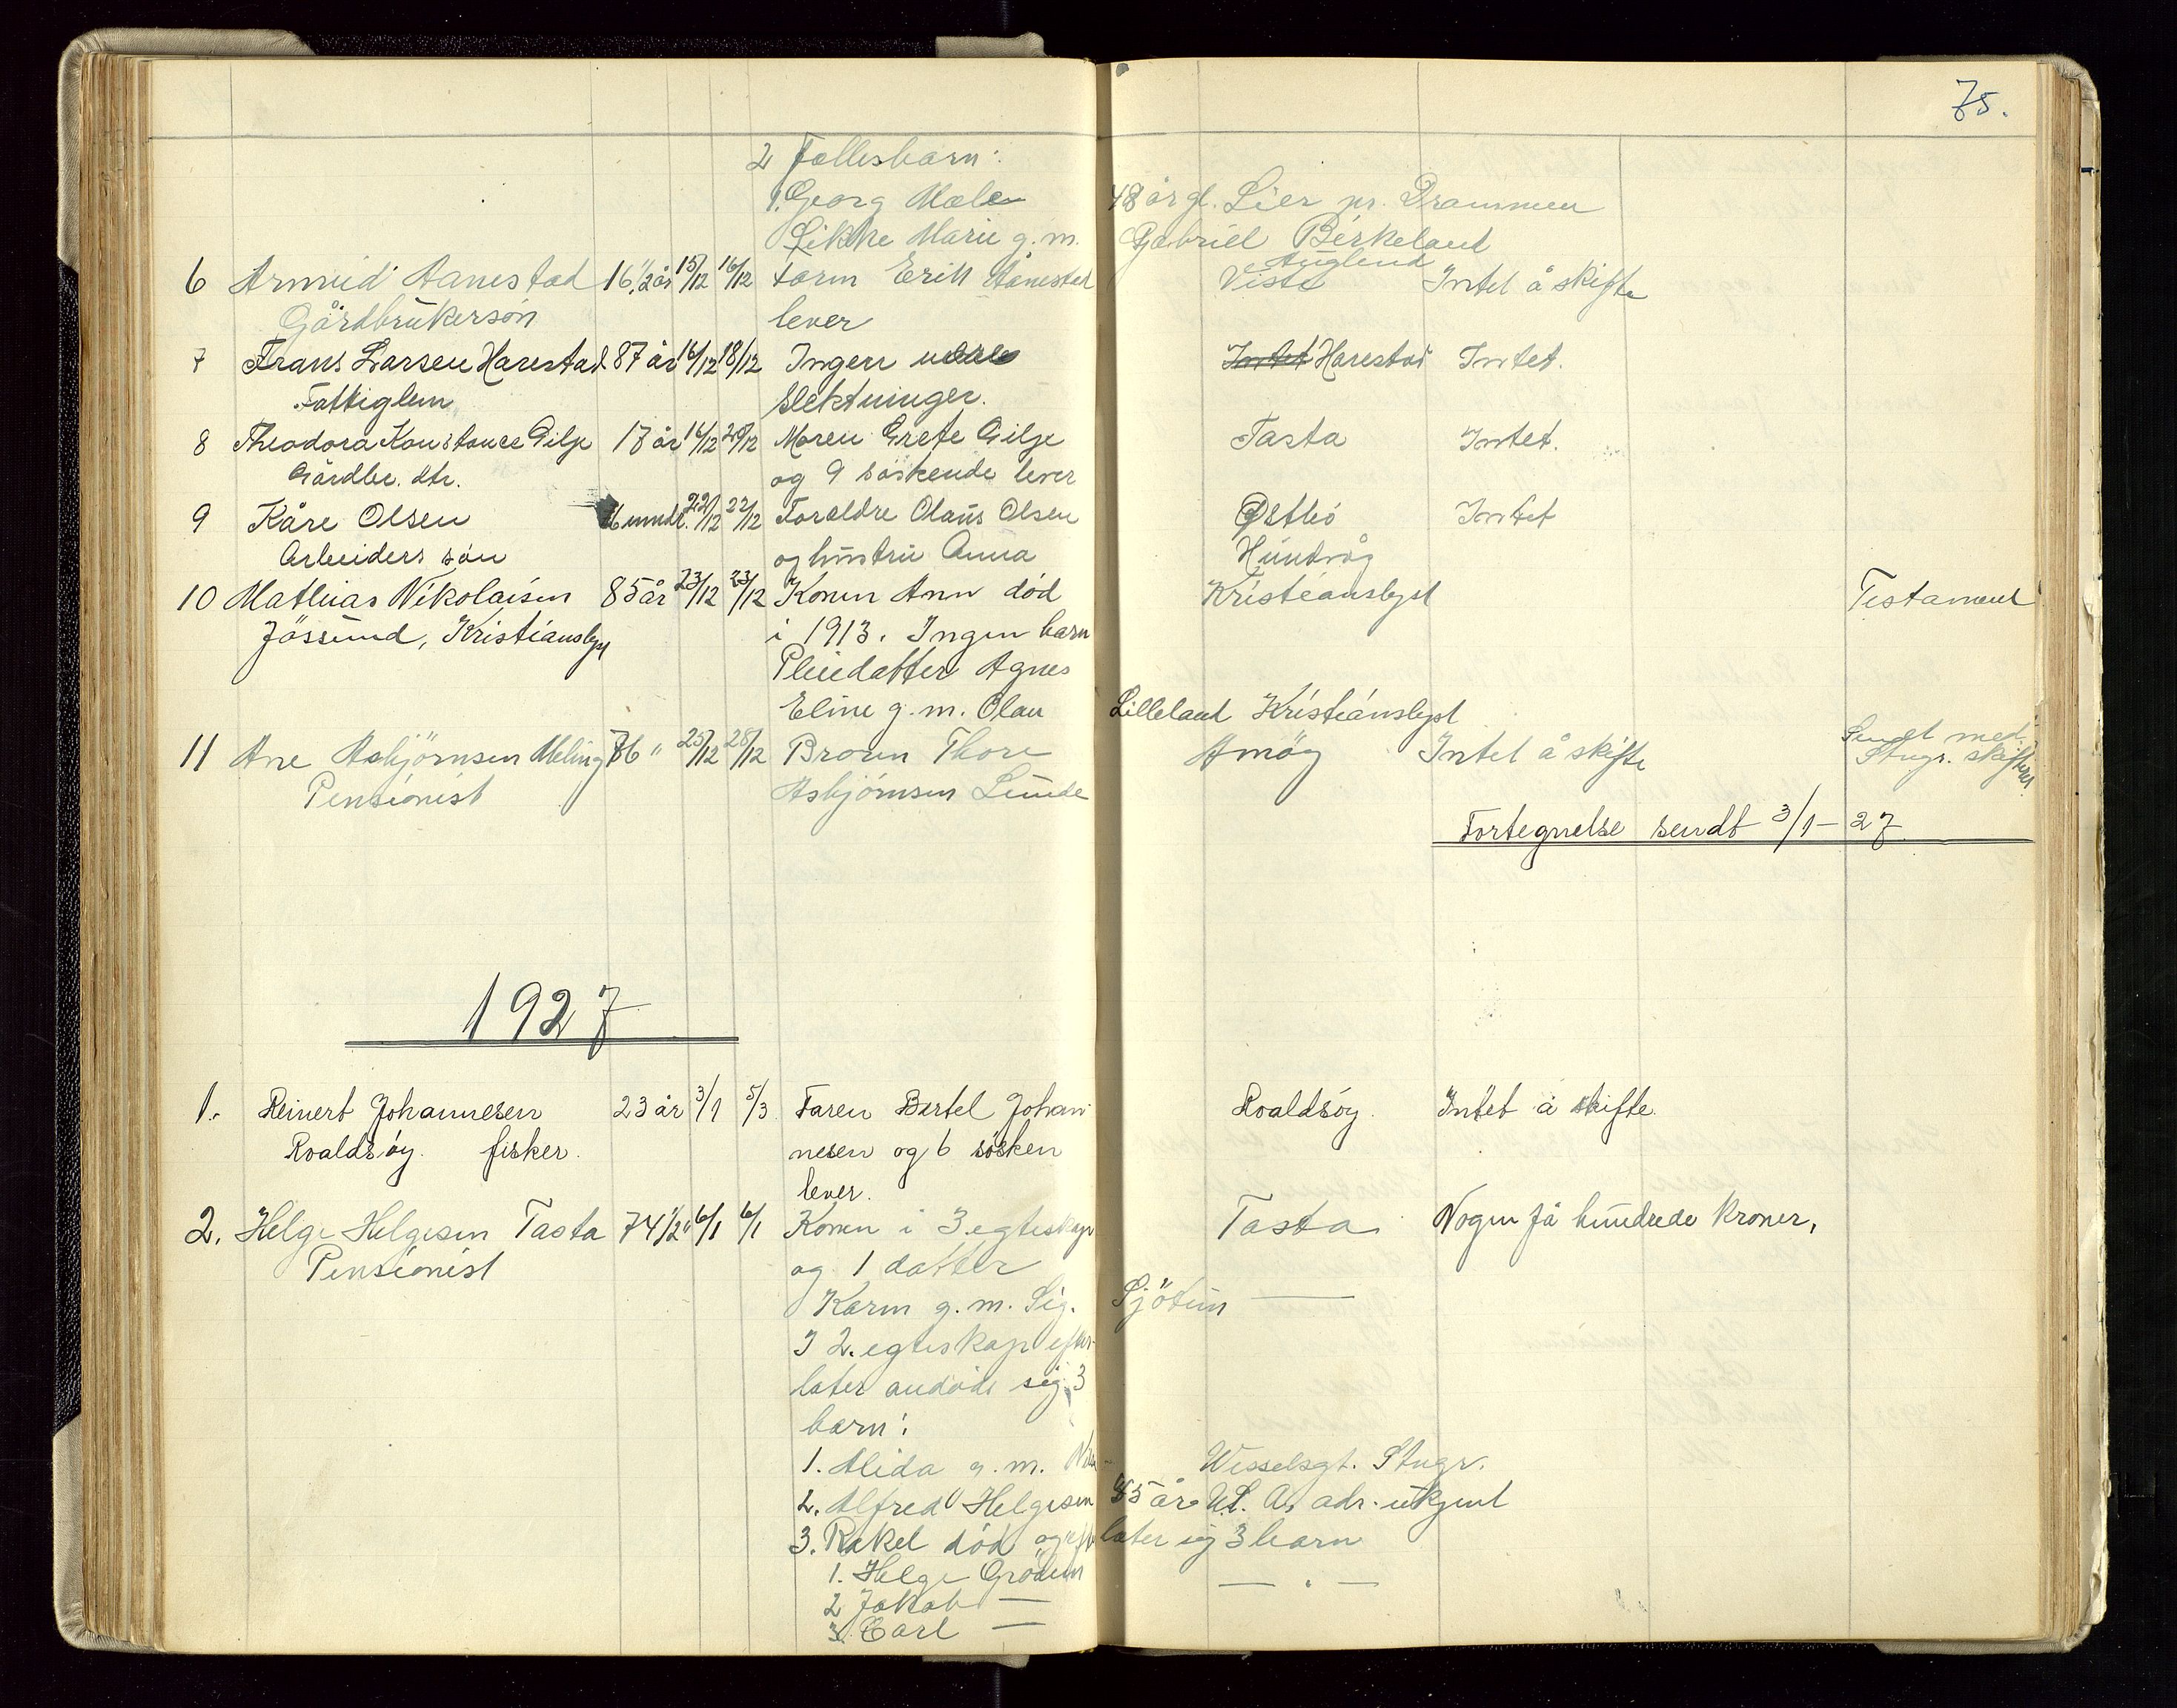 75.
2 Fællesbarn:
1. Georg Mæle 48 år gl. Lier pr. Drammen
Likke Marie g. m. Gabriel Birkeland
Auglend
6 Armuid Aanestad 16 1/2 år 15/12 16/12 Farm Erik Aanestad Viste Intet å skifte
Gårdbrukersøn lever
7 Frans Larsen Harestad 87 år 16/12 18/12 Ingen Intet Harestad Intet.
Fattiglem slektninger.
8 Theodora Konstance Gilje 17 år 16/12 20/12 Moren Grete Gilje Tasta Intet.
Gårdbr. dtr. og 9 søskende lever
9 Kåre Olsen 6 mndr. 22/12 22/12 Forældre Olaus Olsen Østbø Intet
Arbeiders søn og hustru Anna Hundvåg
10 Mathias Nikolaisen 85 år 23/12 23/12 Konen Ann död Kristianslyst Testament
Jössund, Kristianslyst i 1913. Ingen barn
Pleiedatter Agnes
Eline g. m. Olau Lilleland Kristianslyst
11 Ane Asbjörnsen Meling 76 " 25/12 28/12 Broren Thore Åmöy Intet å skifte Sendt med.
Stvgr. skifteret
Pensionist Asbjörnsen Lunde
Fortegnelse sendt 3/1 - 27
1927
1. Reinert Johannesen 23 år 3/1 5/3 Faren Bertel Johan- Roaldsøy. Intet å skifte.
Roaldsøy. fisker. nesen og 6 søsken
lever.
2. Helge Helgesen Tasta 74 1/2 " 6/1 6/1 Konen i 3. egteskap Tasta Nogen få hundrede kroner.
Pensionist og 1 datter
Karen g. m. Sig. Sjötun —
I 2. egteskap efter-
later avdøde sig 3
barn:
1. Alida g. m. Wesselsgt. Stvgr.
2. Alfred Helgesen 45 år U.S.A. adr. ukjent
3. Rakel död og efterlater sig 3 barn
1. Helge Grödem — " —
2 Jakob —
3. Carl —